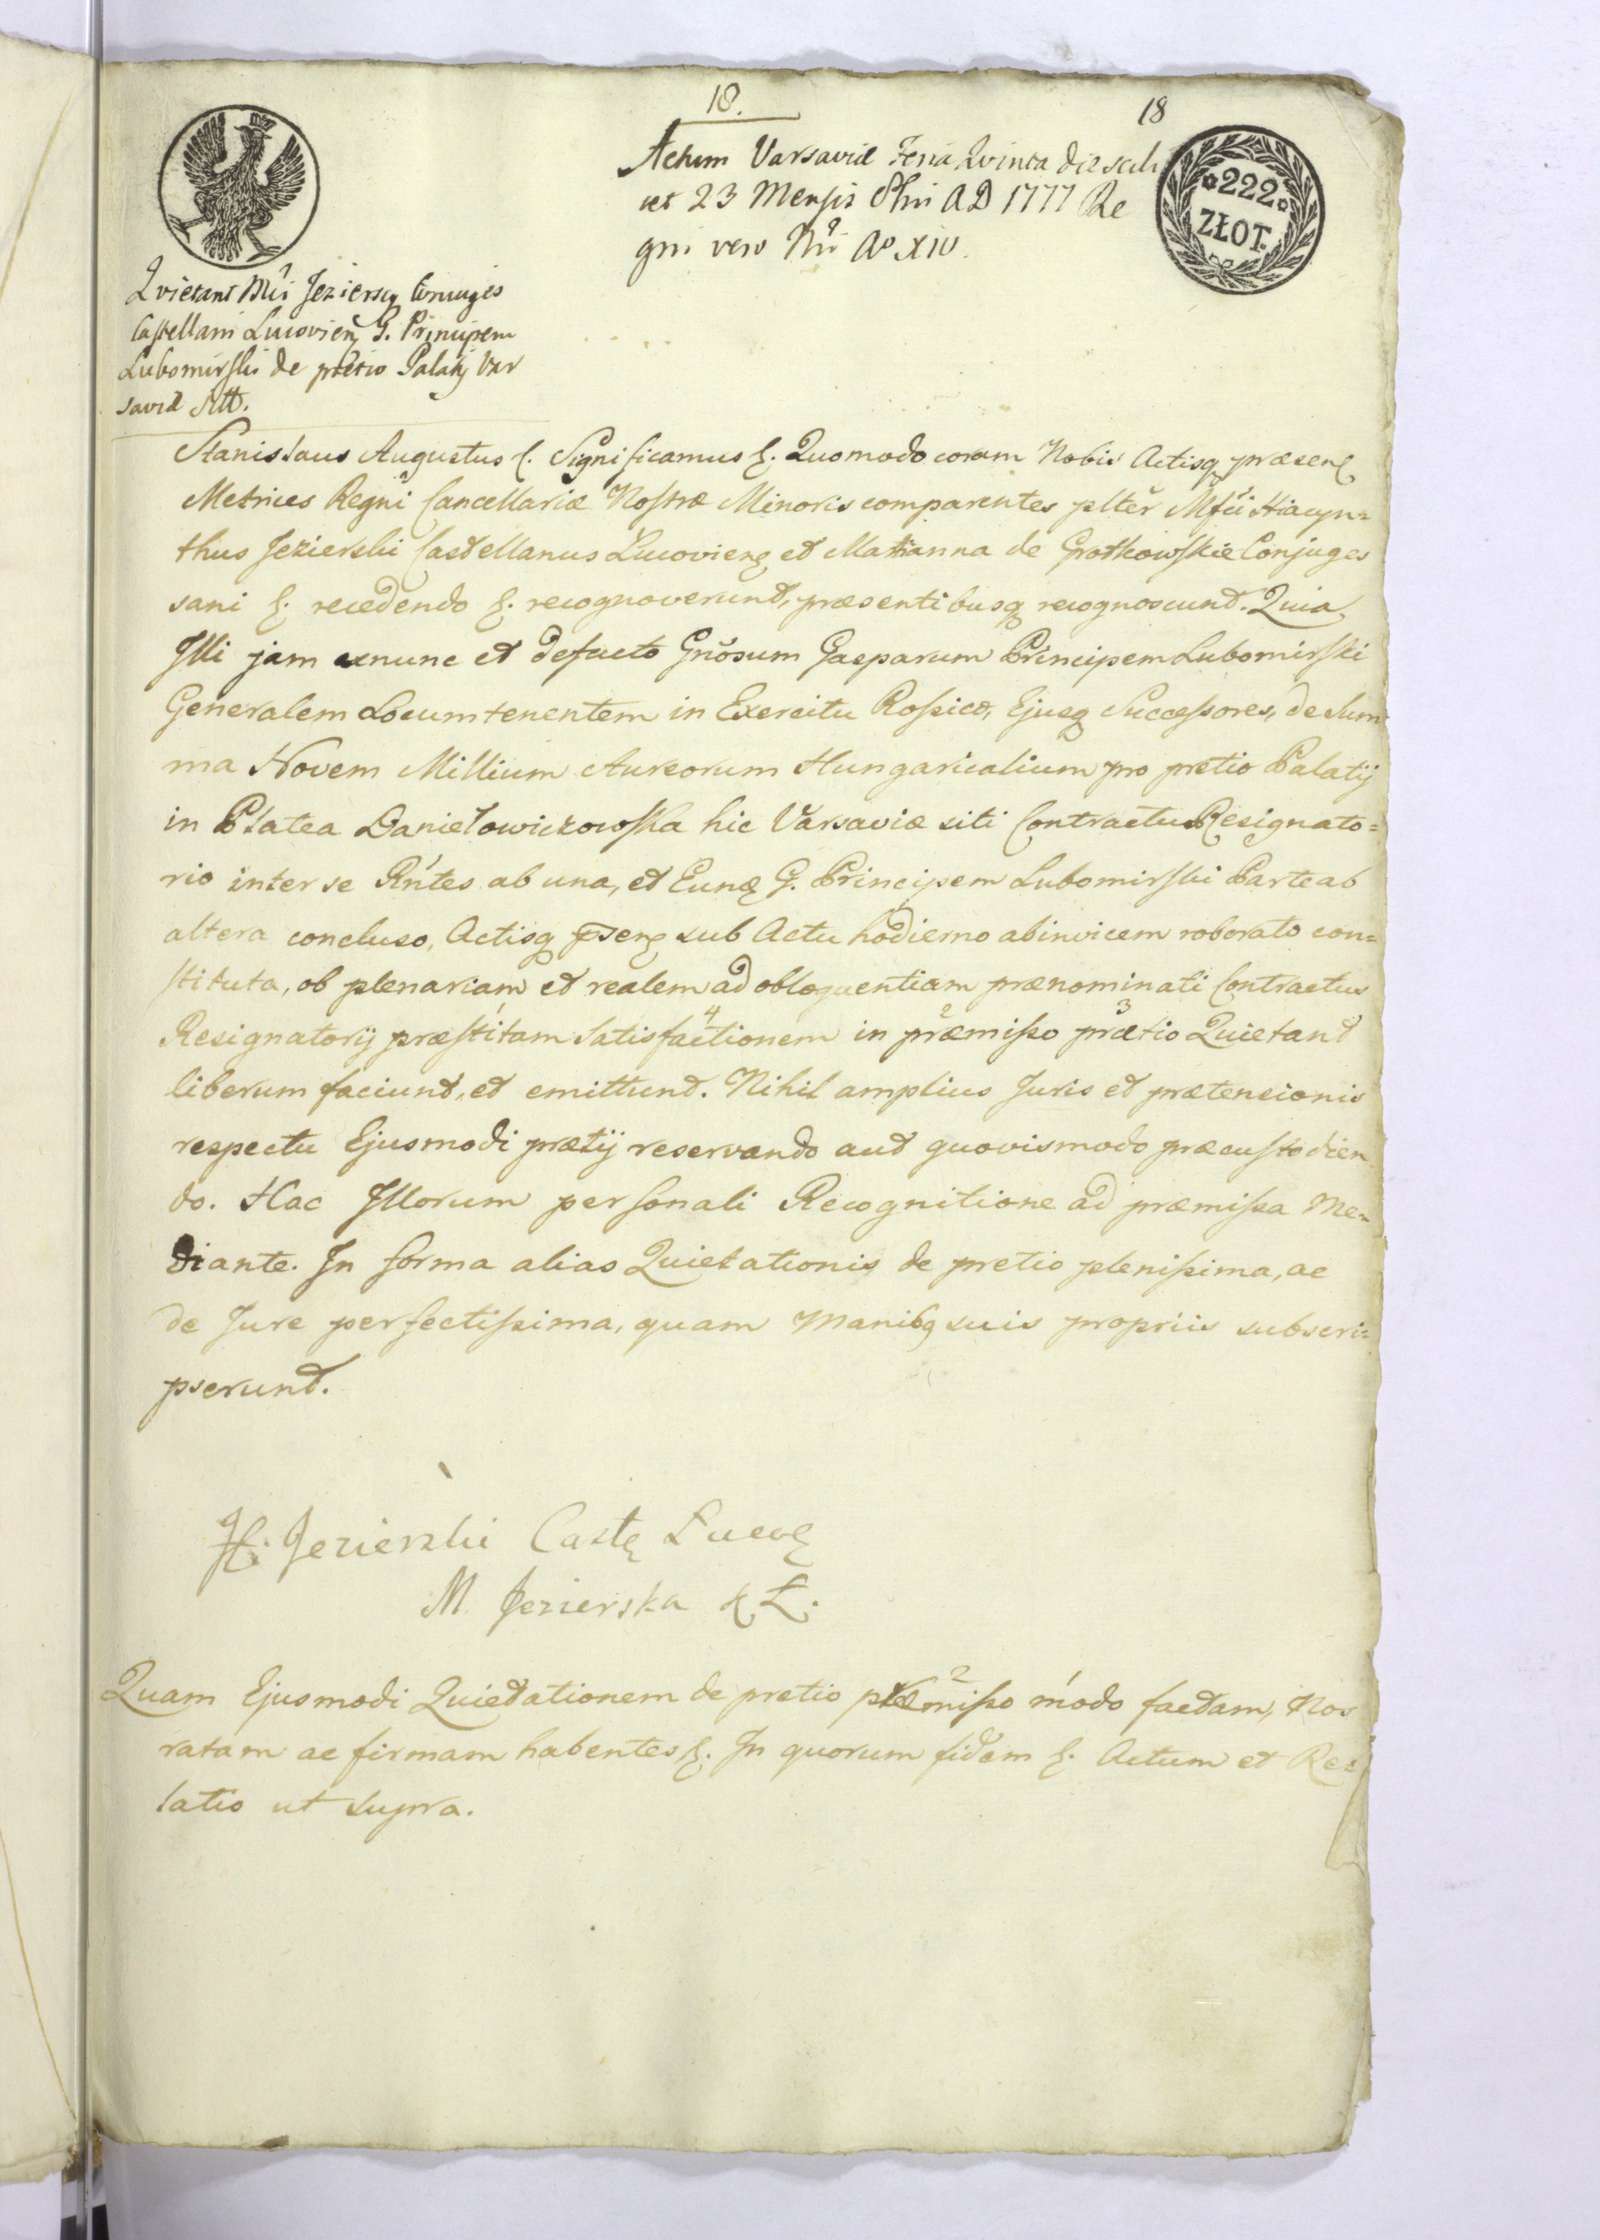 18.
18
Actum Varsaviæ Feria Qvinta die scili
cet 23 Mensis 8bris AD 1777 Re
gni vero Nri Ao XIV.
✿222✿
ZŁOT.
Qvietant Mci Jezierscy Conjuges
Castellani Lucovien G. Principem
Lubomirski de pretio Palatij Var
saviæ Sitt.
Stanislaus Augustus &. Significamus &. Quomodo coram Nobis Actisq præsen
Metrices Regni Cancellariæ Nostræ Minoris comparentes plter Mfci Hiacyn=
thus Jezierski Castellanus Lucovien et Marianna de Grotkowskie Conjuges
sani &. recedendo &. recognoverunt, præsentibusq recognoscunt. Quia
Illi jam exnunc et defacto Gnosum Gasparum Principem Lubomirski
Generalem Locumtenentem in Exercitu Rossico, Ejusq Successores, de Sum
ma Novem Millium Aureorum Hungaricalium pro pretio Palatij
in Platea Daniełowiczowska hic Varsaviæ siti Contractu Resignato=
rio inter se Rntes ab una, et Eund G. Principem Lubomirski Parte ab
altera concluso, Actisq psen sub Actu hodierno abinvicem roborato con=
stituta, ob plenariam et realem ad obloquentiam prænominati Contractus
Resignatorij præstitam Satisfactionem in præmisso prætio Quietant
liberum faciunt, et emittunt. Nihil amplius Juris et prætensionis
respectu Ejusmodi prætij reservando aut quovismodo præcustodien
do. Hac Illorum personali Recognitione ad præmissa Me=
diante. In forma alias Quietationis de pretio plenissima, ac
de Jure perfectissima, quam Manibq suis propriis subscri=
pserunt.
H. Jezierski Cast Łuco
M. Jezierska K Ł.
Quam Ejusmodi Quietationem de pretio præmisso modo factam, Nos
ratam ac firmam habentes &. In quorum fidem &. Actum et Re=
latio ut supra.